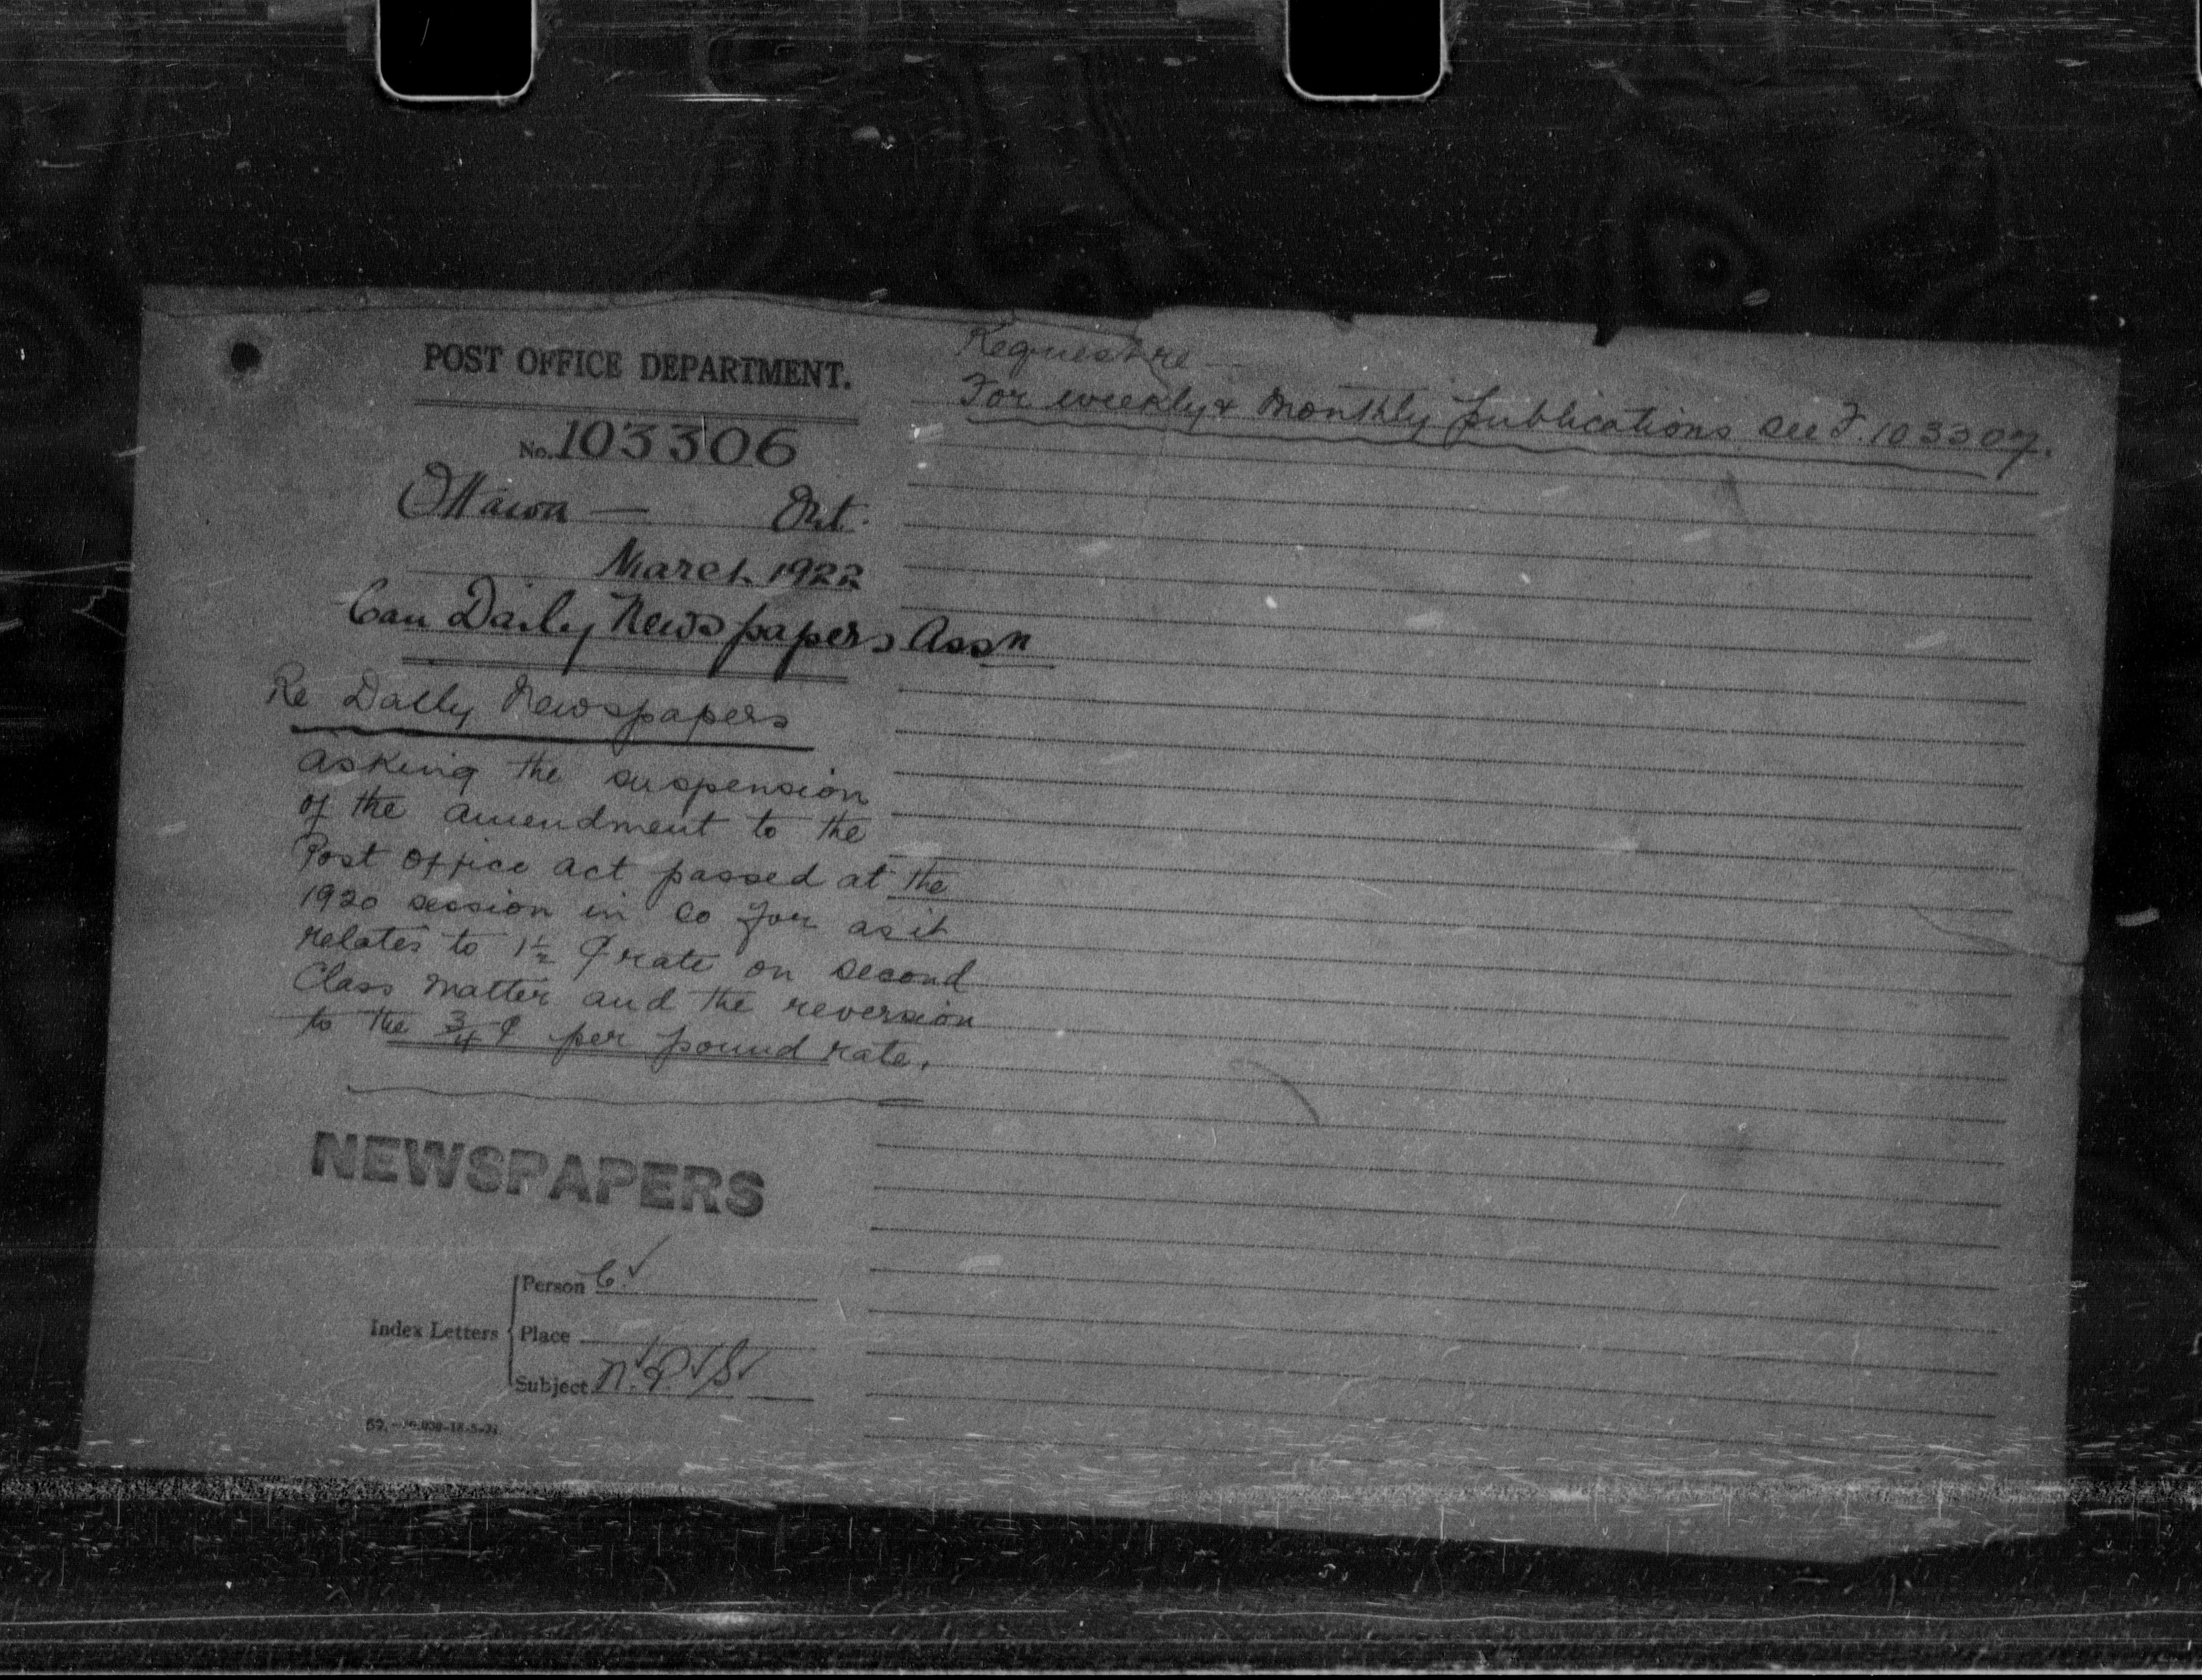 POST OFFICE DEPARTMENT.
No. 103306
Ottawa — Ont.
March 1922
Can Daily Newspapers Assn
Re Daily Newspapers
asking the suspension
of the amendment to the
Post Office act passed at the
1920 session in so far as it
relates to 1½ ¢ rate on second
Class matter and the reversion
to the ¾ ¢ per pound rate.
NEWSPAPERS
Index Letters
Person C.
Place
Subject N.P.
Request re —
For weekly & monthly publications see F. 103307.